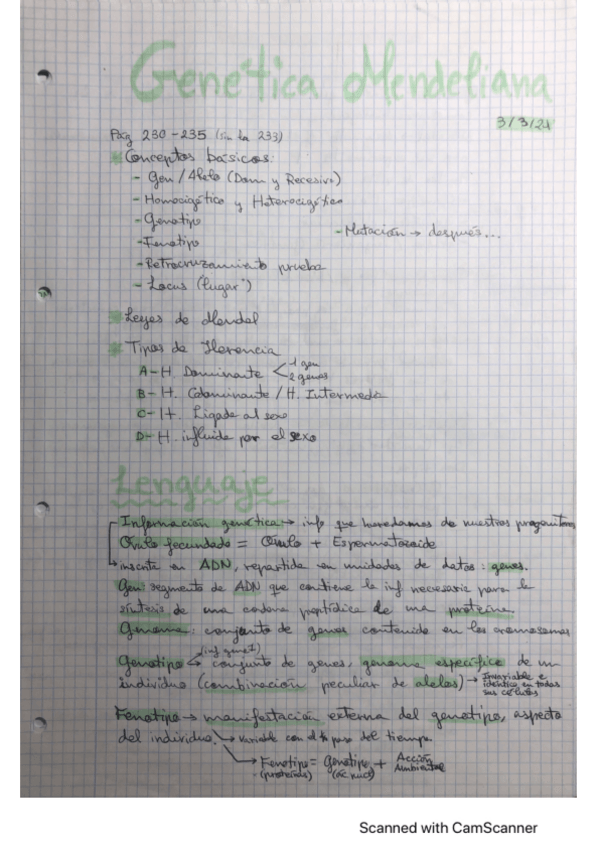 Genética Mendeliana
3/3/21
Pág 230-235 (sin la 233)
* Conceptos básicos:
- Gen / Alelo (Dom y Recesivo)
- Homocigótico y Heterocigótico
- Genotipo
- Mutación → después...
- Fenotipo
- Retrocruzamiento prueba
- Locus (lugar)
* Leyes de Mendel
* Tipos de Herencia
A- H. Dominante < 1 gen
2 genes
B- H. Codominante / H. Intermedia
C- H. Ligada al sexo
D- H. influida por el sexo
Lenguaje
Información genética → info que heredamos de nuestros progenitores
Óvulo fecundado = Óvulo + Espermatozoide
→ inscrita en ADN, repartida en unidades de datos: genes.
Gen: segmento de ADN que contiene la inf necesaria para la
síntesis de una cadena peptídica de una proteína.
Genoma: conjunto de genes contenido en los cromosomas
Genotipo (inf genet) conjunto de genes, genoma específico de un
individuo (combinación peculiar de alelos) → Invariable e
idéntico en todas
sus células
Fenotipo → manifestación externa del genotipo, aspecto
del individuo. → variable con el paso del tiempo.
→ Fenotipo = Genotipo + Acción
Ambiental
(proteínas) (ác. nucl)
Scanned with CamScanner